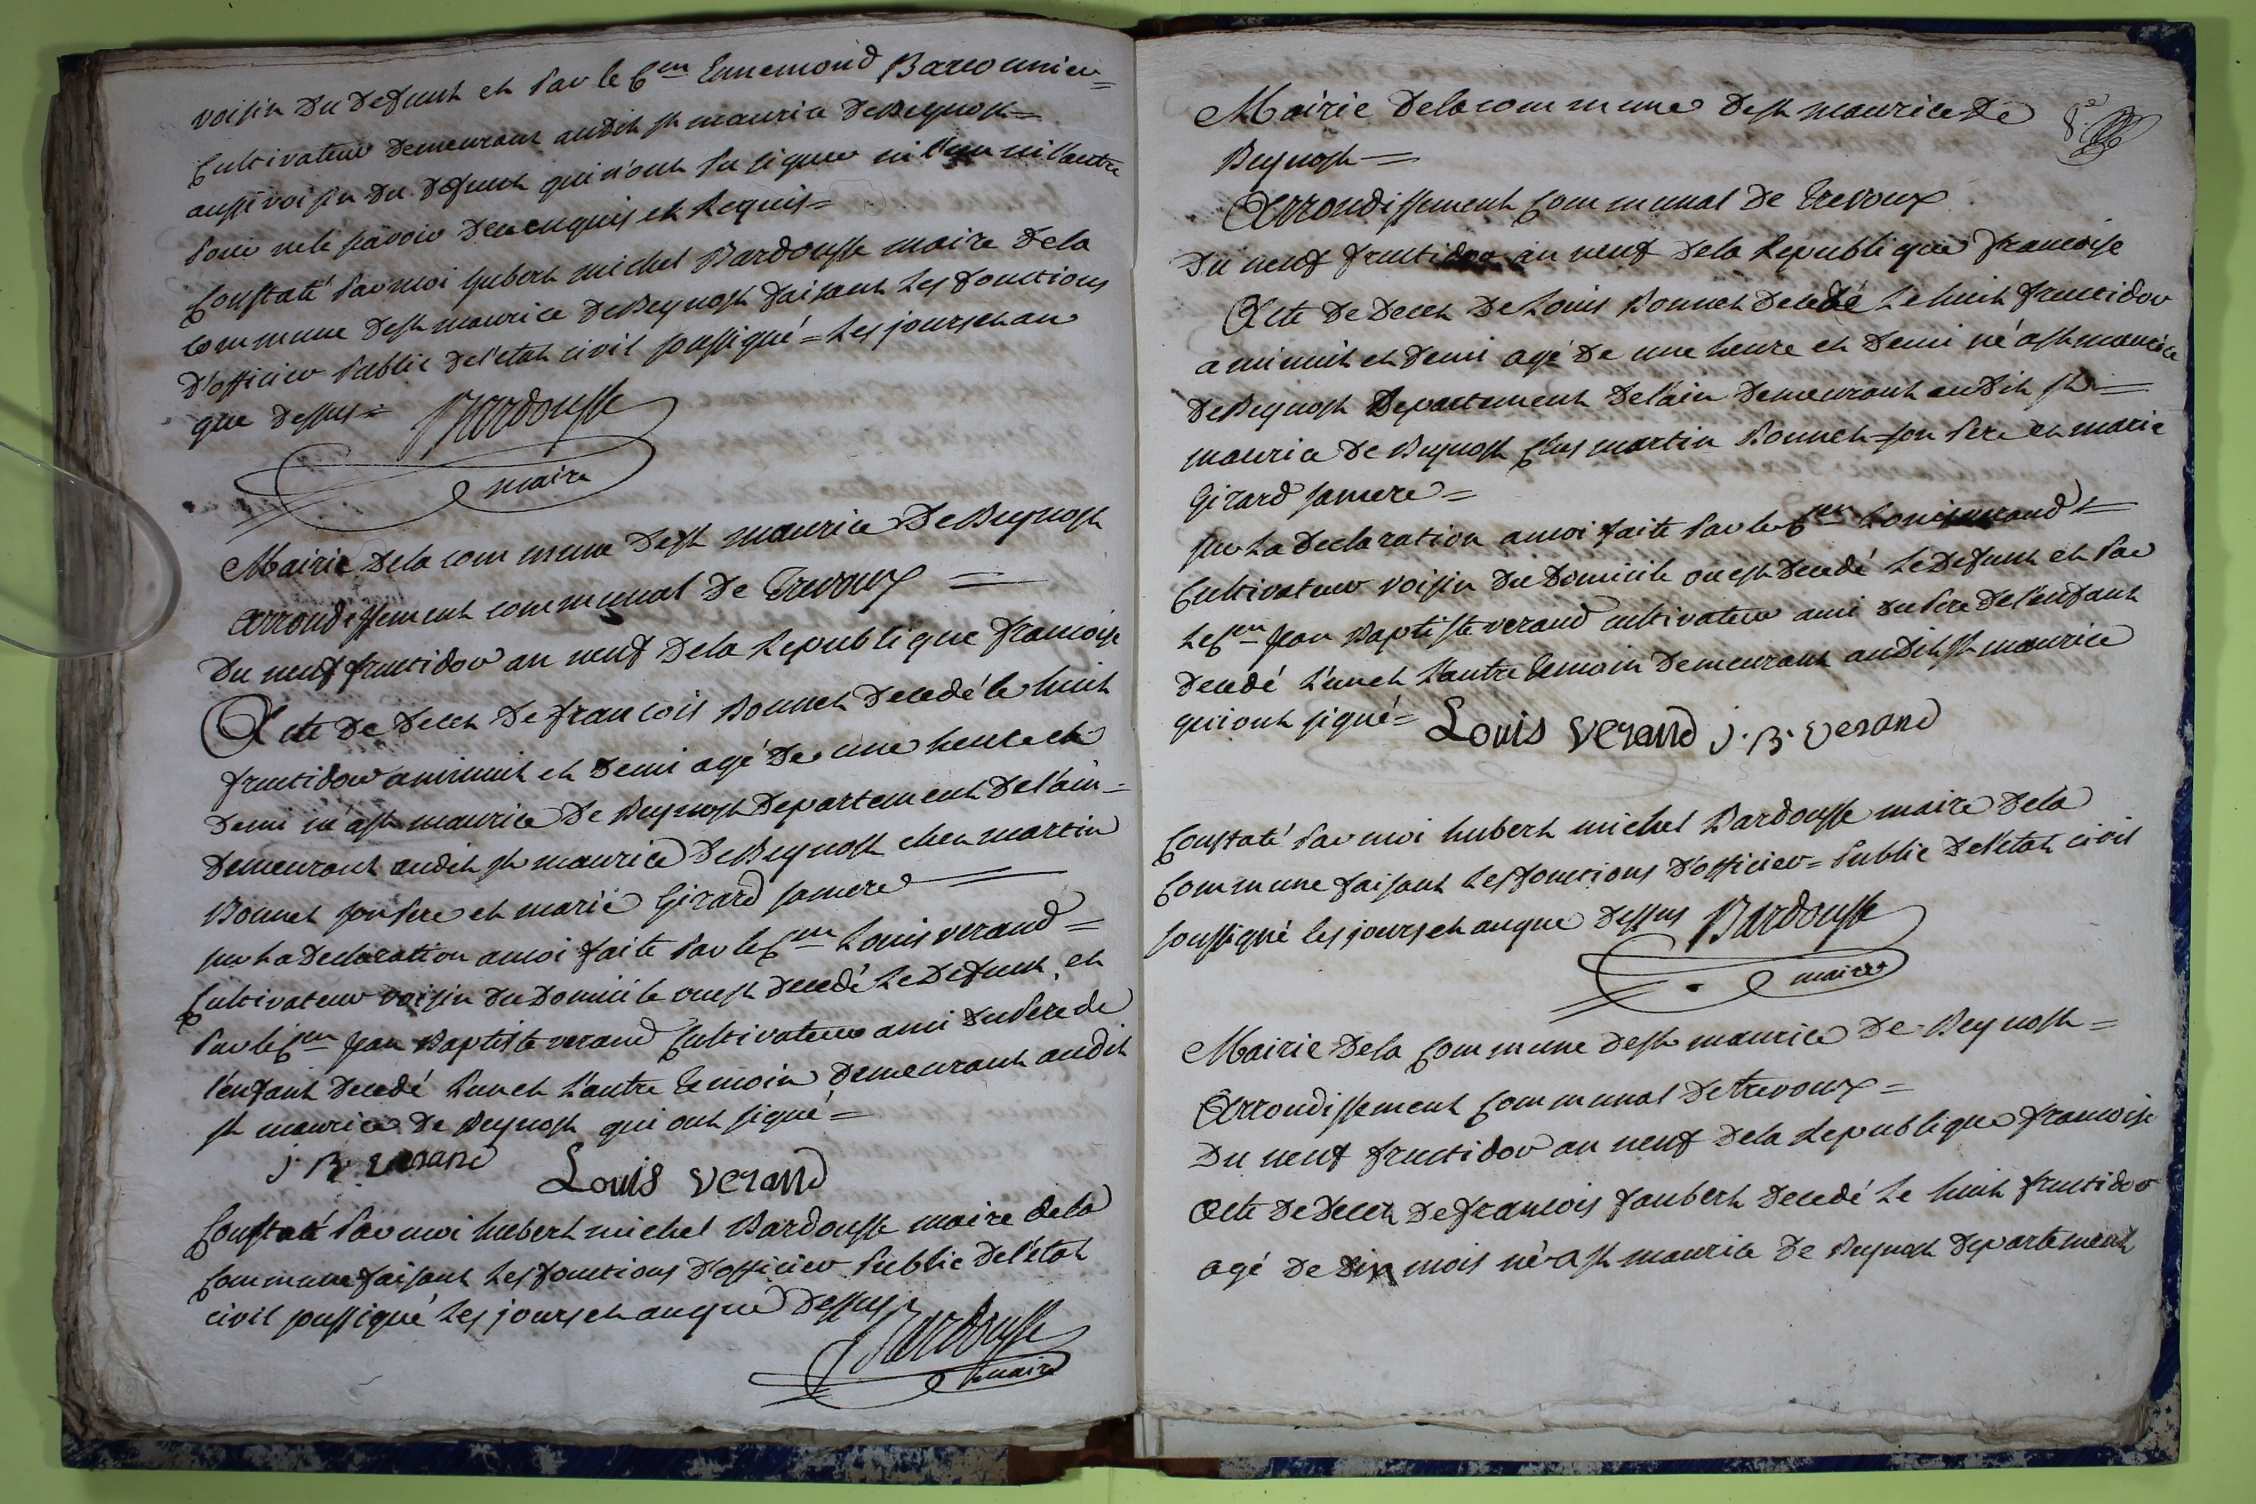 voisin du defunt et par le Cen Ennemond Barcounier =
Cultivateur demeurant audit st maurice de Beynost =
aussi voisin du defunt qui n'ont su signer ni l'un ni l'autre
pour ne le sçavoir de ce enquis et Requis =
Constaté par moi hubert michel Bardousse maire de la
commune de st maurice de Beynost faisant les fonctions
d'officier public de l'etat civil soussigné = les jours et an
que dessus = Bardousse
maire
Mairie de la commune de st maurice de Beynost
arrondissement communal de Trevoux =
Du neuf fructidor an neuf de la Republique francoise
Acte de decet de francois Bonnet decedé le huit
fructidor a minuit et demi agé de une heure et
demi né a st maurice de Beynost departement de l'ain =
demeurant audit st maurice de Beynost chez martin
Bonnet son pere et marie Girard sa mere =
sur la declaration a moi faite par le Cen Louis verand =
Cultivateur voisin du domicile ou est decedé le defunt, et
par le Cen jean Baptiste verand Cultivateur ami du pere de
l'enfant decedé l'un et l'autre temoin demeurant audit
st maurice de Beynost qui ont signé =
J. B. verand Louis verand
Constaté par moi hubert michel Bardousse maire de la
commune faisant les fonctions d'officier public de l'etat
civil soussigné les jours et an que dessus
Bardousse
maire
Mairie de la commune de st maurice de
Beynost =
Arrondissement Communal de Trevoux
Du neuf fructidor an neuf de la Republique francoise
Acte de decet de Louis Bonnet decedé le huit fructidor
a minuit et demi agé de une heure et demi né a st maurice
de Beynost departement de l'ain demeurant audit st =
maurice de Beynost Chez martin Bonnet son pere et marie
Girard sa mere =
sur la declaration a moi faite par le Cen Louis verand =
Cultivateur voisin du domicile ou est decedé le defunt et par
le Cen jean Baptiste verand cultivateur ami du pere de l'enfant
decedé l'un et l'autre temoin demeurant audit st maurice
qui ont signé = Louis verand J. B. verand
Constaté par moi hubert michel Bardousse maire de la
commune faisant les fonctions d'officier = public de l'etat civil
soussigné les jours et an que dessus Bardousse
maire
Mairie de la Commune de st maurice de Beynost =
Arrondissement Communal de trevoux =
Du neuf fructidor an neuf de la Republique francoise
Acte de decet de francois faubert decedé le huit fructidor
agé de dix mois né a st maurice de Beynost departement